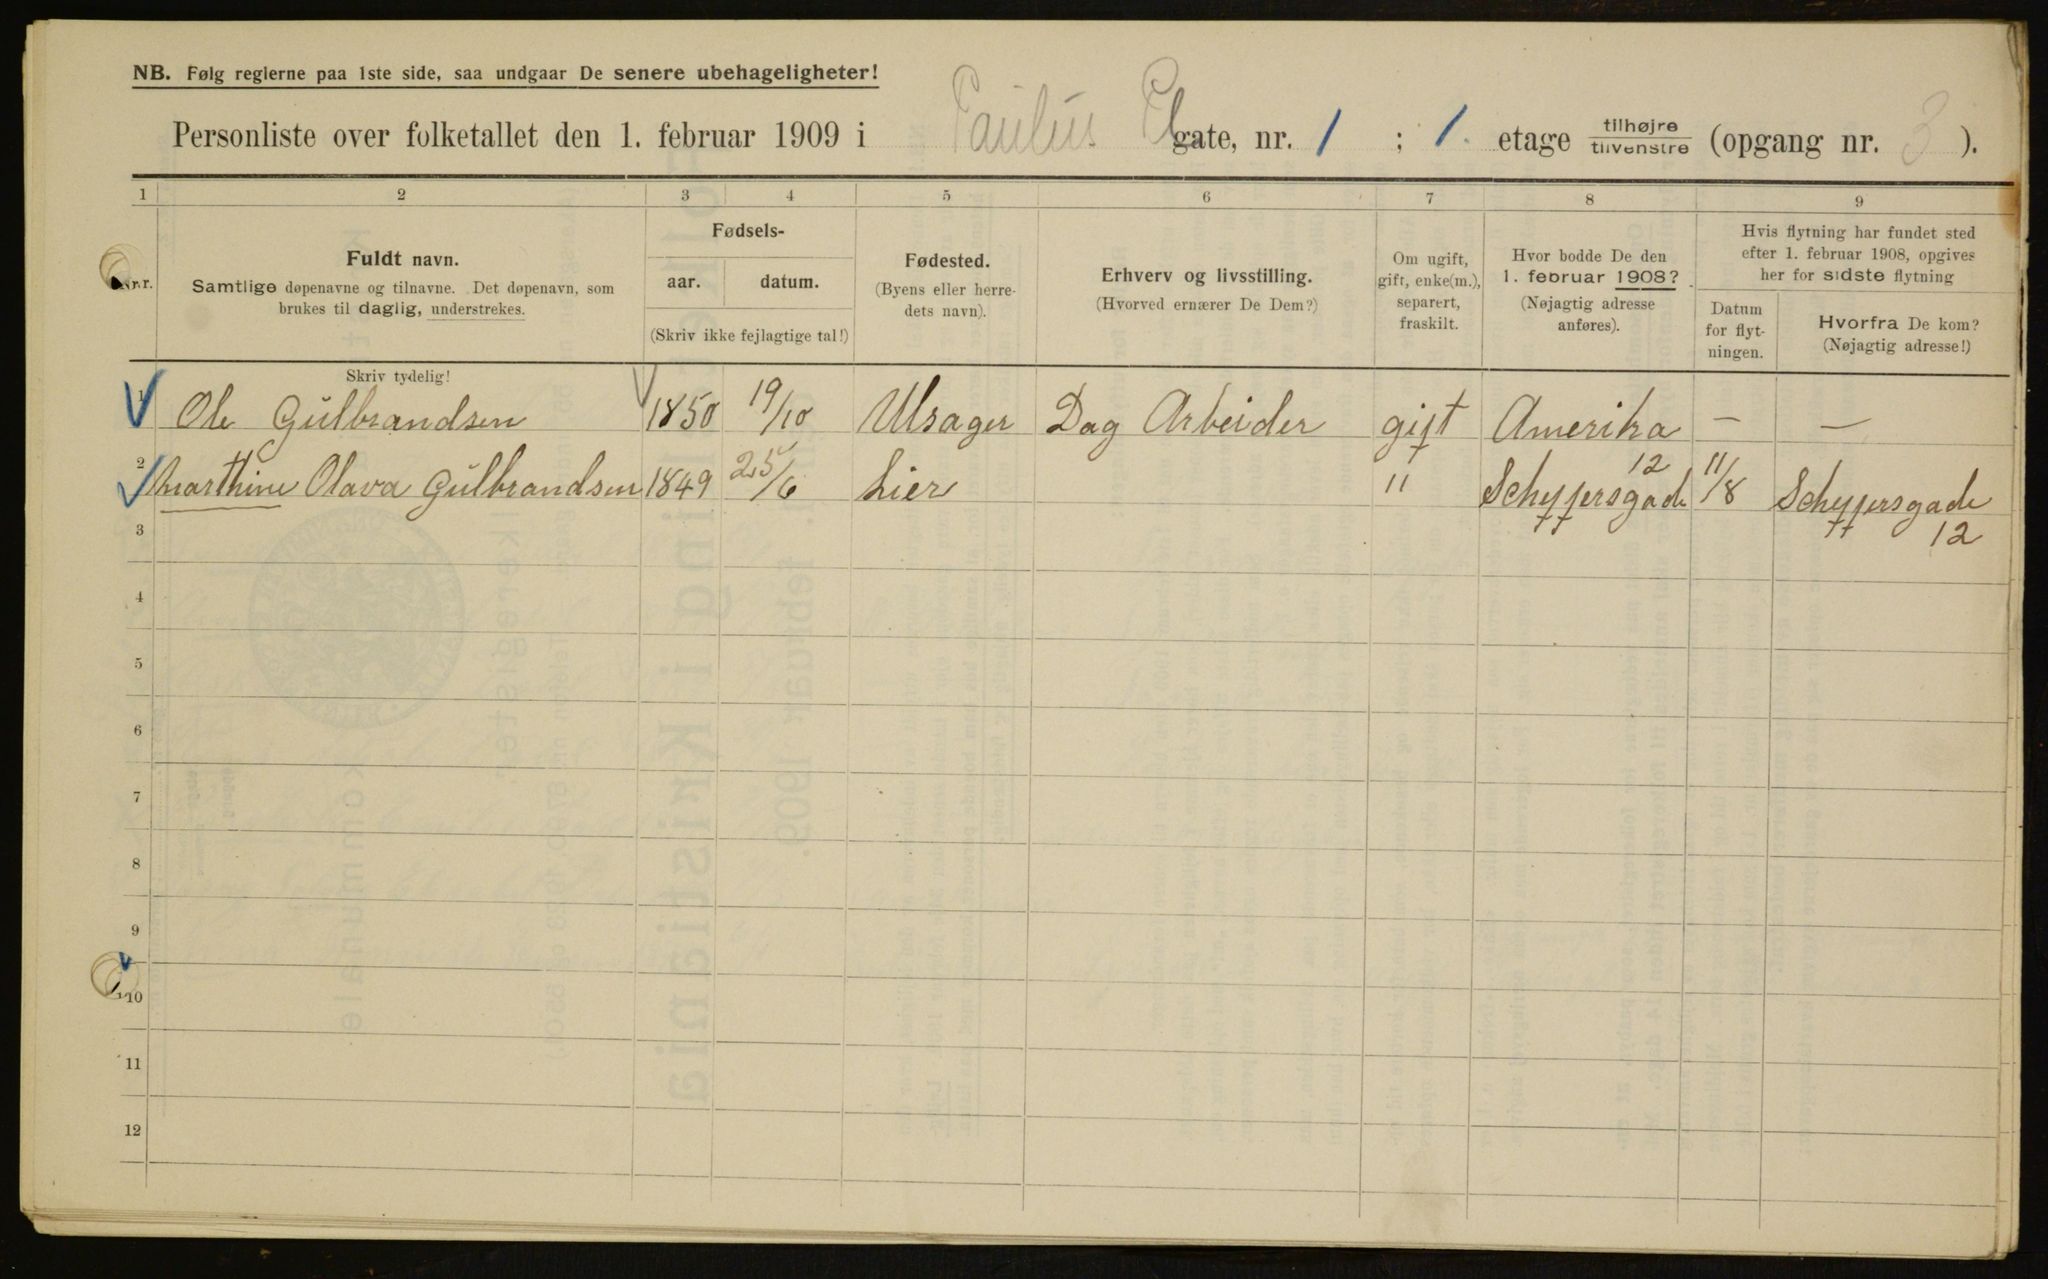 NB. Følg reglerne paa 1ste side, saa undgaar De senere ubehageligheter!
Personliste over folketallet den 1. februar 1909 i Paulus Pl gate, nr. 1 ; 1. etage tilhøjre tilvenstre (opgang nr. 3 ).
1 2 3 4 5 6 7 8 9
Nr.
Fuldt navn.
Samtlige døpenavne og tilnavne. Det døpenavn, som
brukes til daglig, understrekes.
Skriv tydelig!
Fødsels-
aar. datum.
(Skriv ikke fejlagtige tal!)
Fødested.
(Byens eller herre-
dets navn).
Erhverv og livsstilling.
(Hvorved ernærer De Dem?)
Om ugift,
gift, enke(m.),
separert,
fraskilt.
Hvor bodde De den
1. februar 1908?
(Nøjagtig adresse
anføres).
Hvis flytning har fundet sted
efter 1. februar 1908, opgives
her for sidste flytning
Datum
for flyt-
ningen.
Hvorfra De kom?
(Nøjagtig adresse!)
1 Ole Gulbrandsen 1850 19/10 Ulsager Dag Arbeider gift Amerika — —
2 Marthine Olava Gulbrandsen 1849 25/6 Lier " Schyffersgade 12 11/8 Schyffersgade
12
3
4
5
6
7
8
9
10
11
12